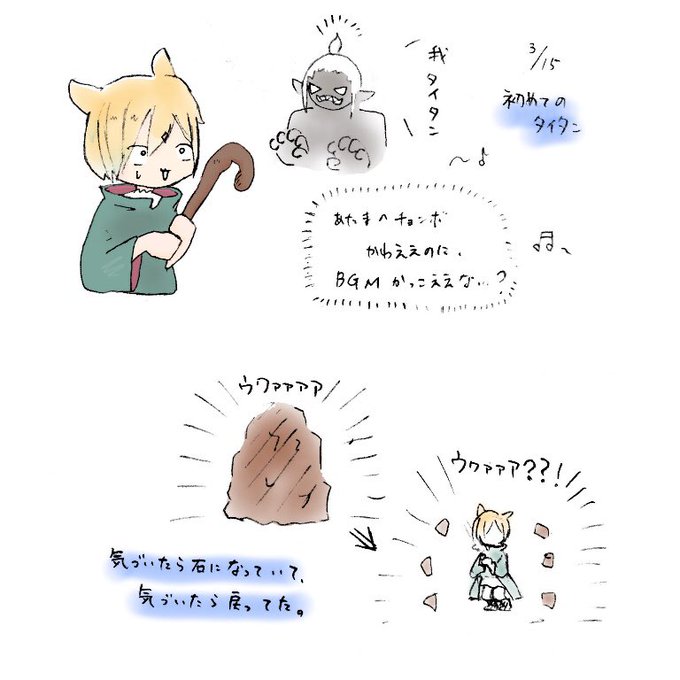 3/15
初めての
タイタン
我タイタン
～♪
あたまのチョンボ
かわええのに、
BGMかっこええな…?
♫～
ウワァァァァ
ウワァァァ??!
気づいたら石になっていて、
気づいたら戻ってた。